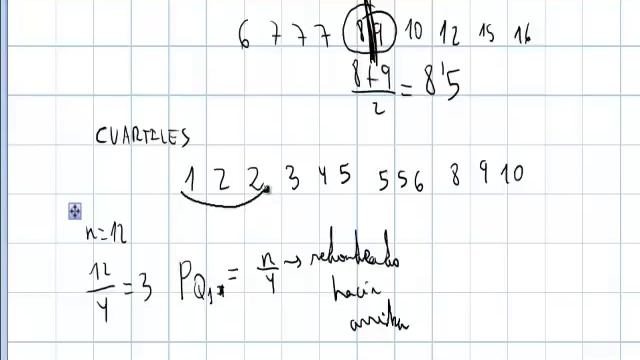 6 7 7 7 8 9 10 12 15 16
8+9/2 = 8'5
CUARTILES
1 2 2 3 4 5 5 5 6 8 9 10
n=12
12/4 = 3
P Q1 = n/4 → redondeado
hacia
arriba